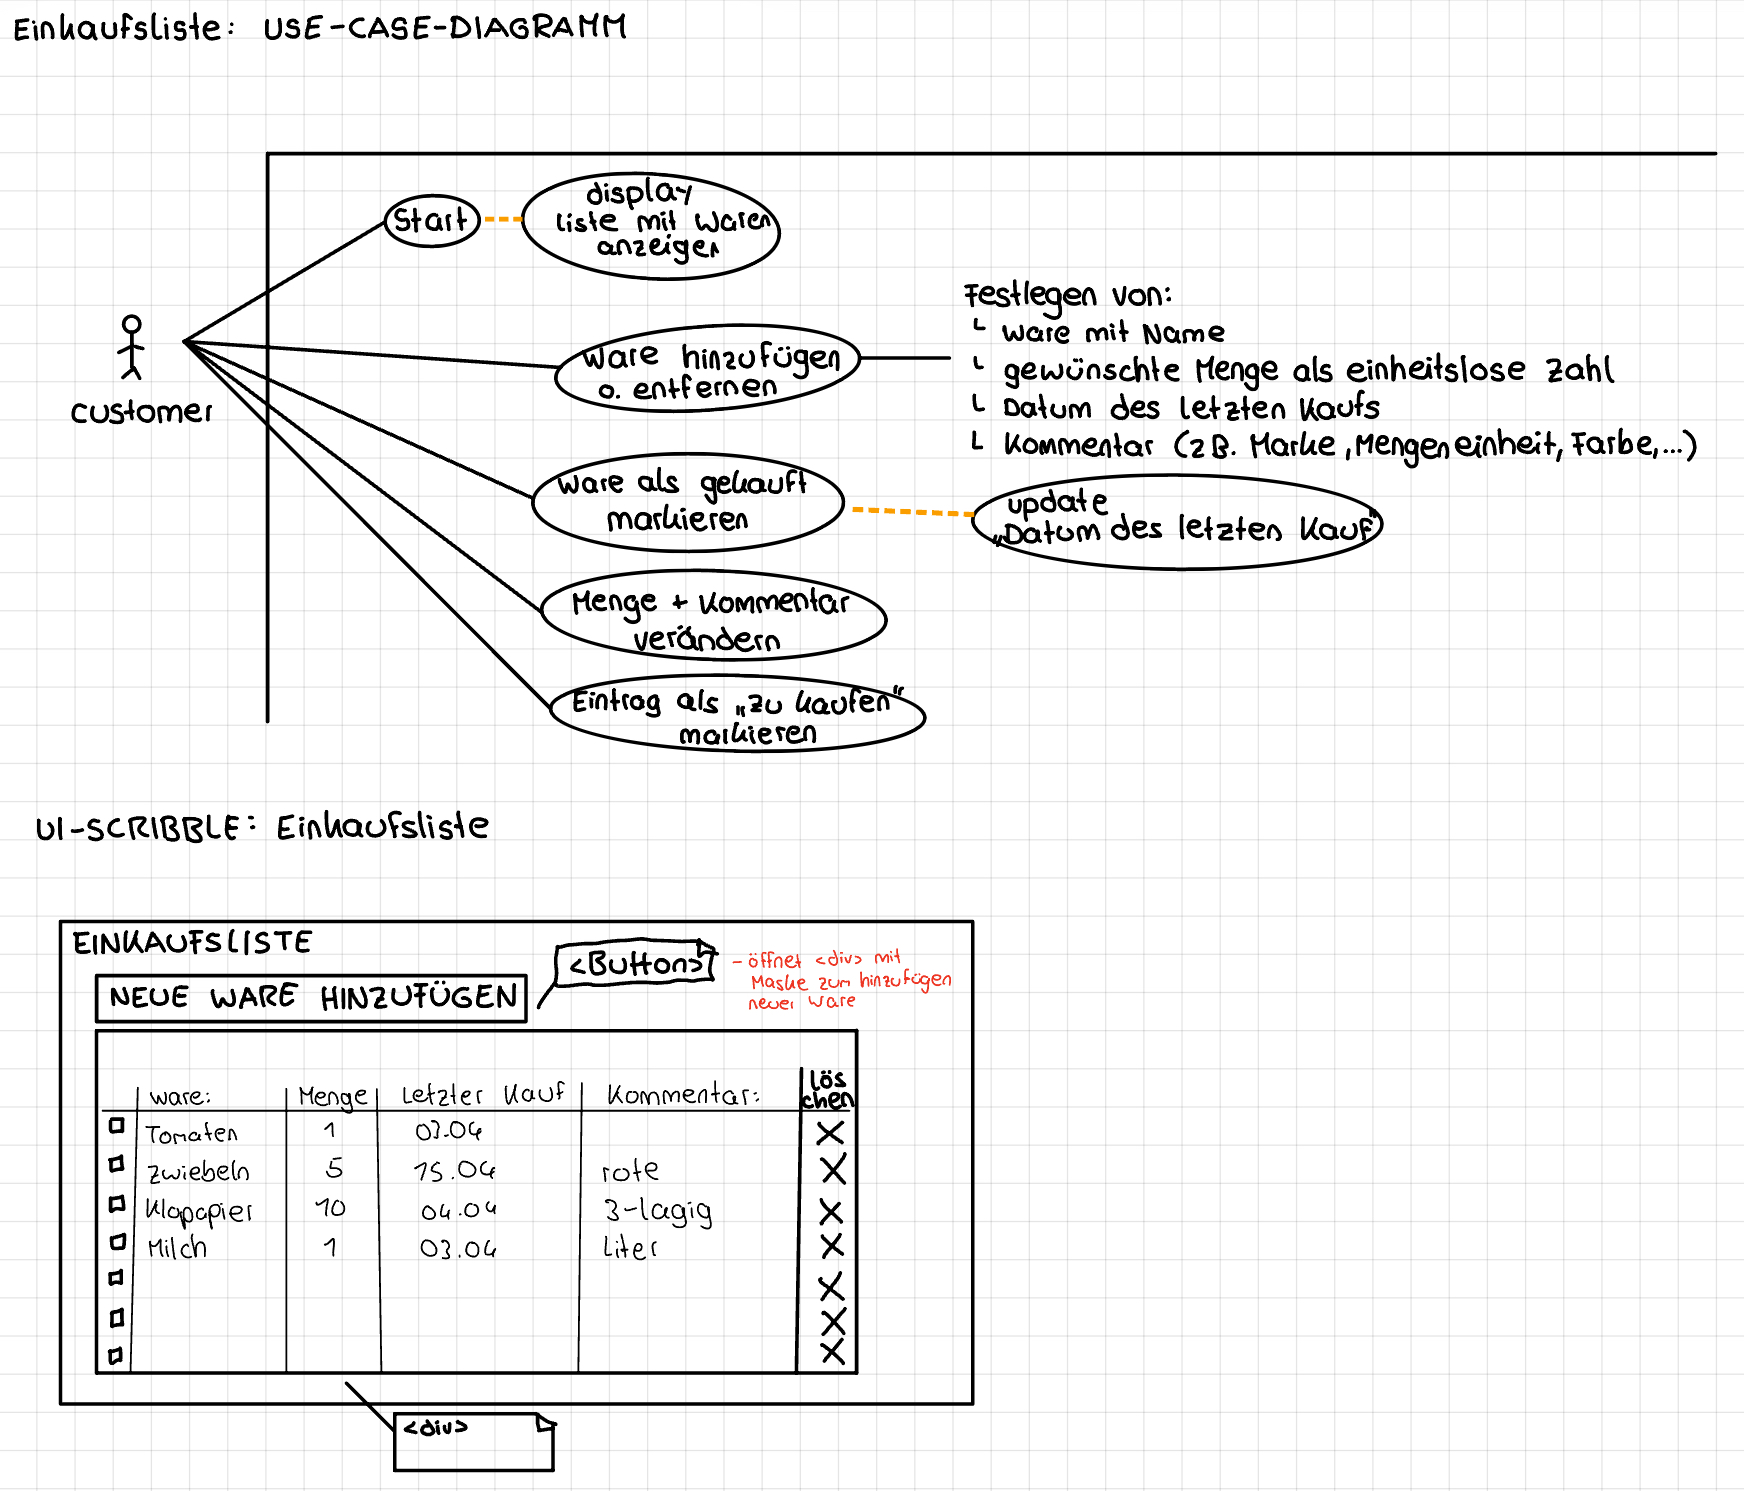 Einkaufsliste: USE-CASE-DIAGRAMM
Start
display
liste mit Waren
anzeigen
customer
Ware hinzufügen
o. entfernen
Festlegen von:
Ware mit Name
gewünschte Menge als einheitslose Zahl
Datum des letzten Kaufs
Kommentar (zB. Marke, Mengeneinheit, Farbe,...)
Ware als gekauft
markieren
update
„Datum des letzten Kauf"
Menge + Kommentar
verändern
Eintrag als „zu kaufen"
markieren
UI-SCRIBBLE: Einkaufsliste
EINKAUFSLISTE
<Button>
- öffnet <div> mit
Maske zum hinzufügen
neuer Ware
NEUE WARE HINZUFÜGEN
Ware: Menge Letzter Kauf Kommentar: lös
chen
Tomaten 1 03.04 X
Zwiebeln 5 15.04 rote X
Klopapier 10 04.04 3-lagig X
Milch 1 03.04 Liter X
X
X
X
<div>